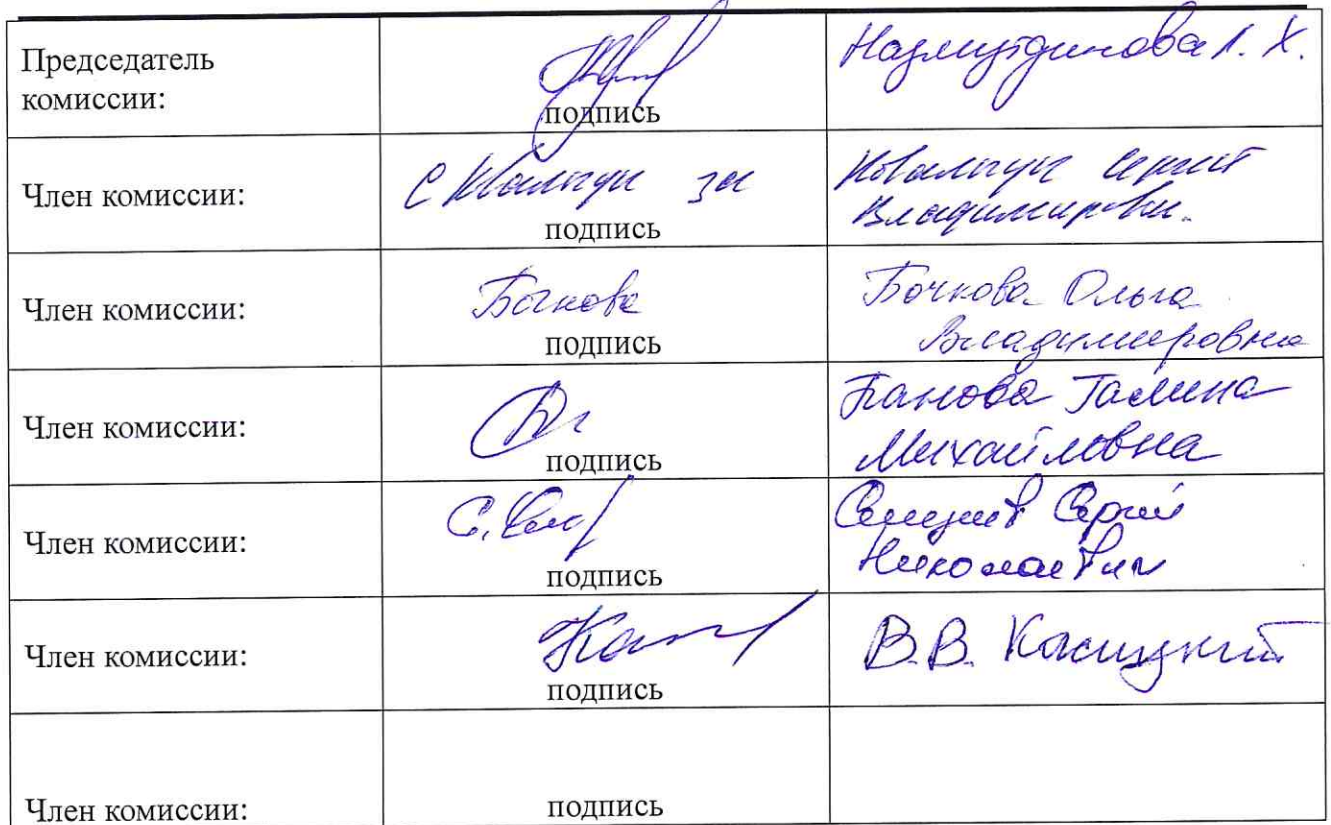 Председатель
комиссии:
подпись
Назмутдинова Л. Х.
Член комиссии:
за
подпись
Владимирович.
Член комиссии:
Бочкова
подпись
Бочкова Ольга
Владимировна
Член комиссии:
подпись
Панова Галина
Михайловна
Член комиссии:
С.
подпись
Сергей
Николаевич
Член комиссии:
подпись
В.В.
Член комиссии:
подпись